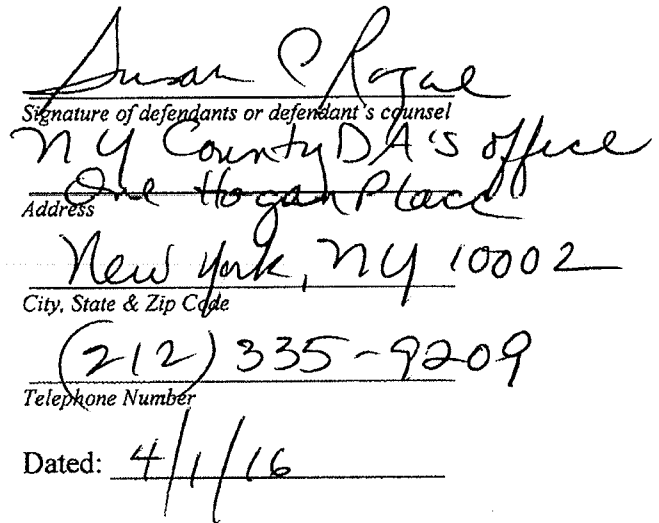 Susan C Roque
Signature of defendants or defendant's counsel
NY County DA's office
One Hogan Place
Address
New York, NY 10002
City, State & Zip Code
(212) 335-9209
Telephone Number
Dated: 4/1/16